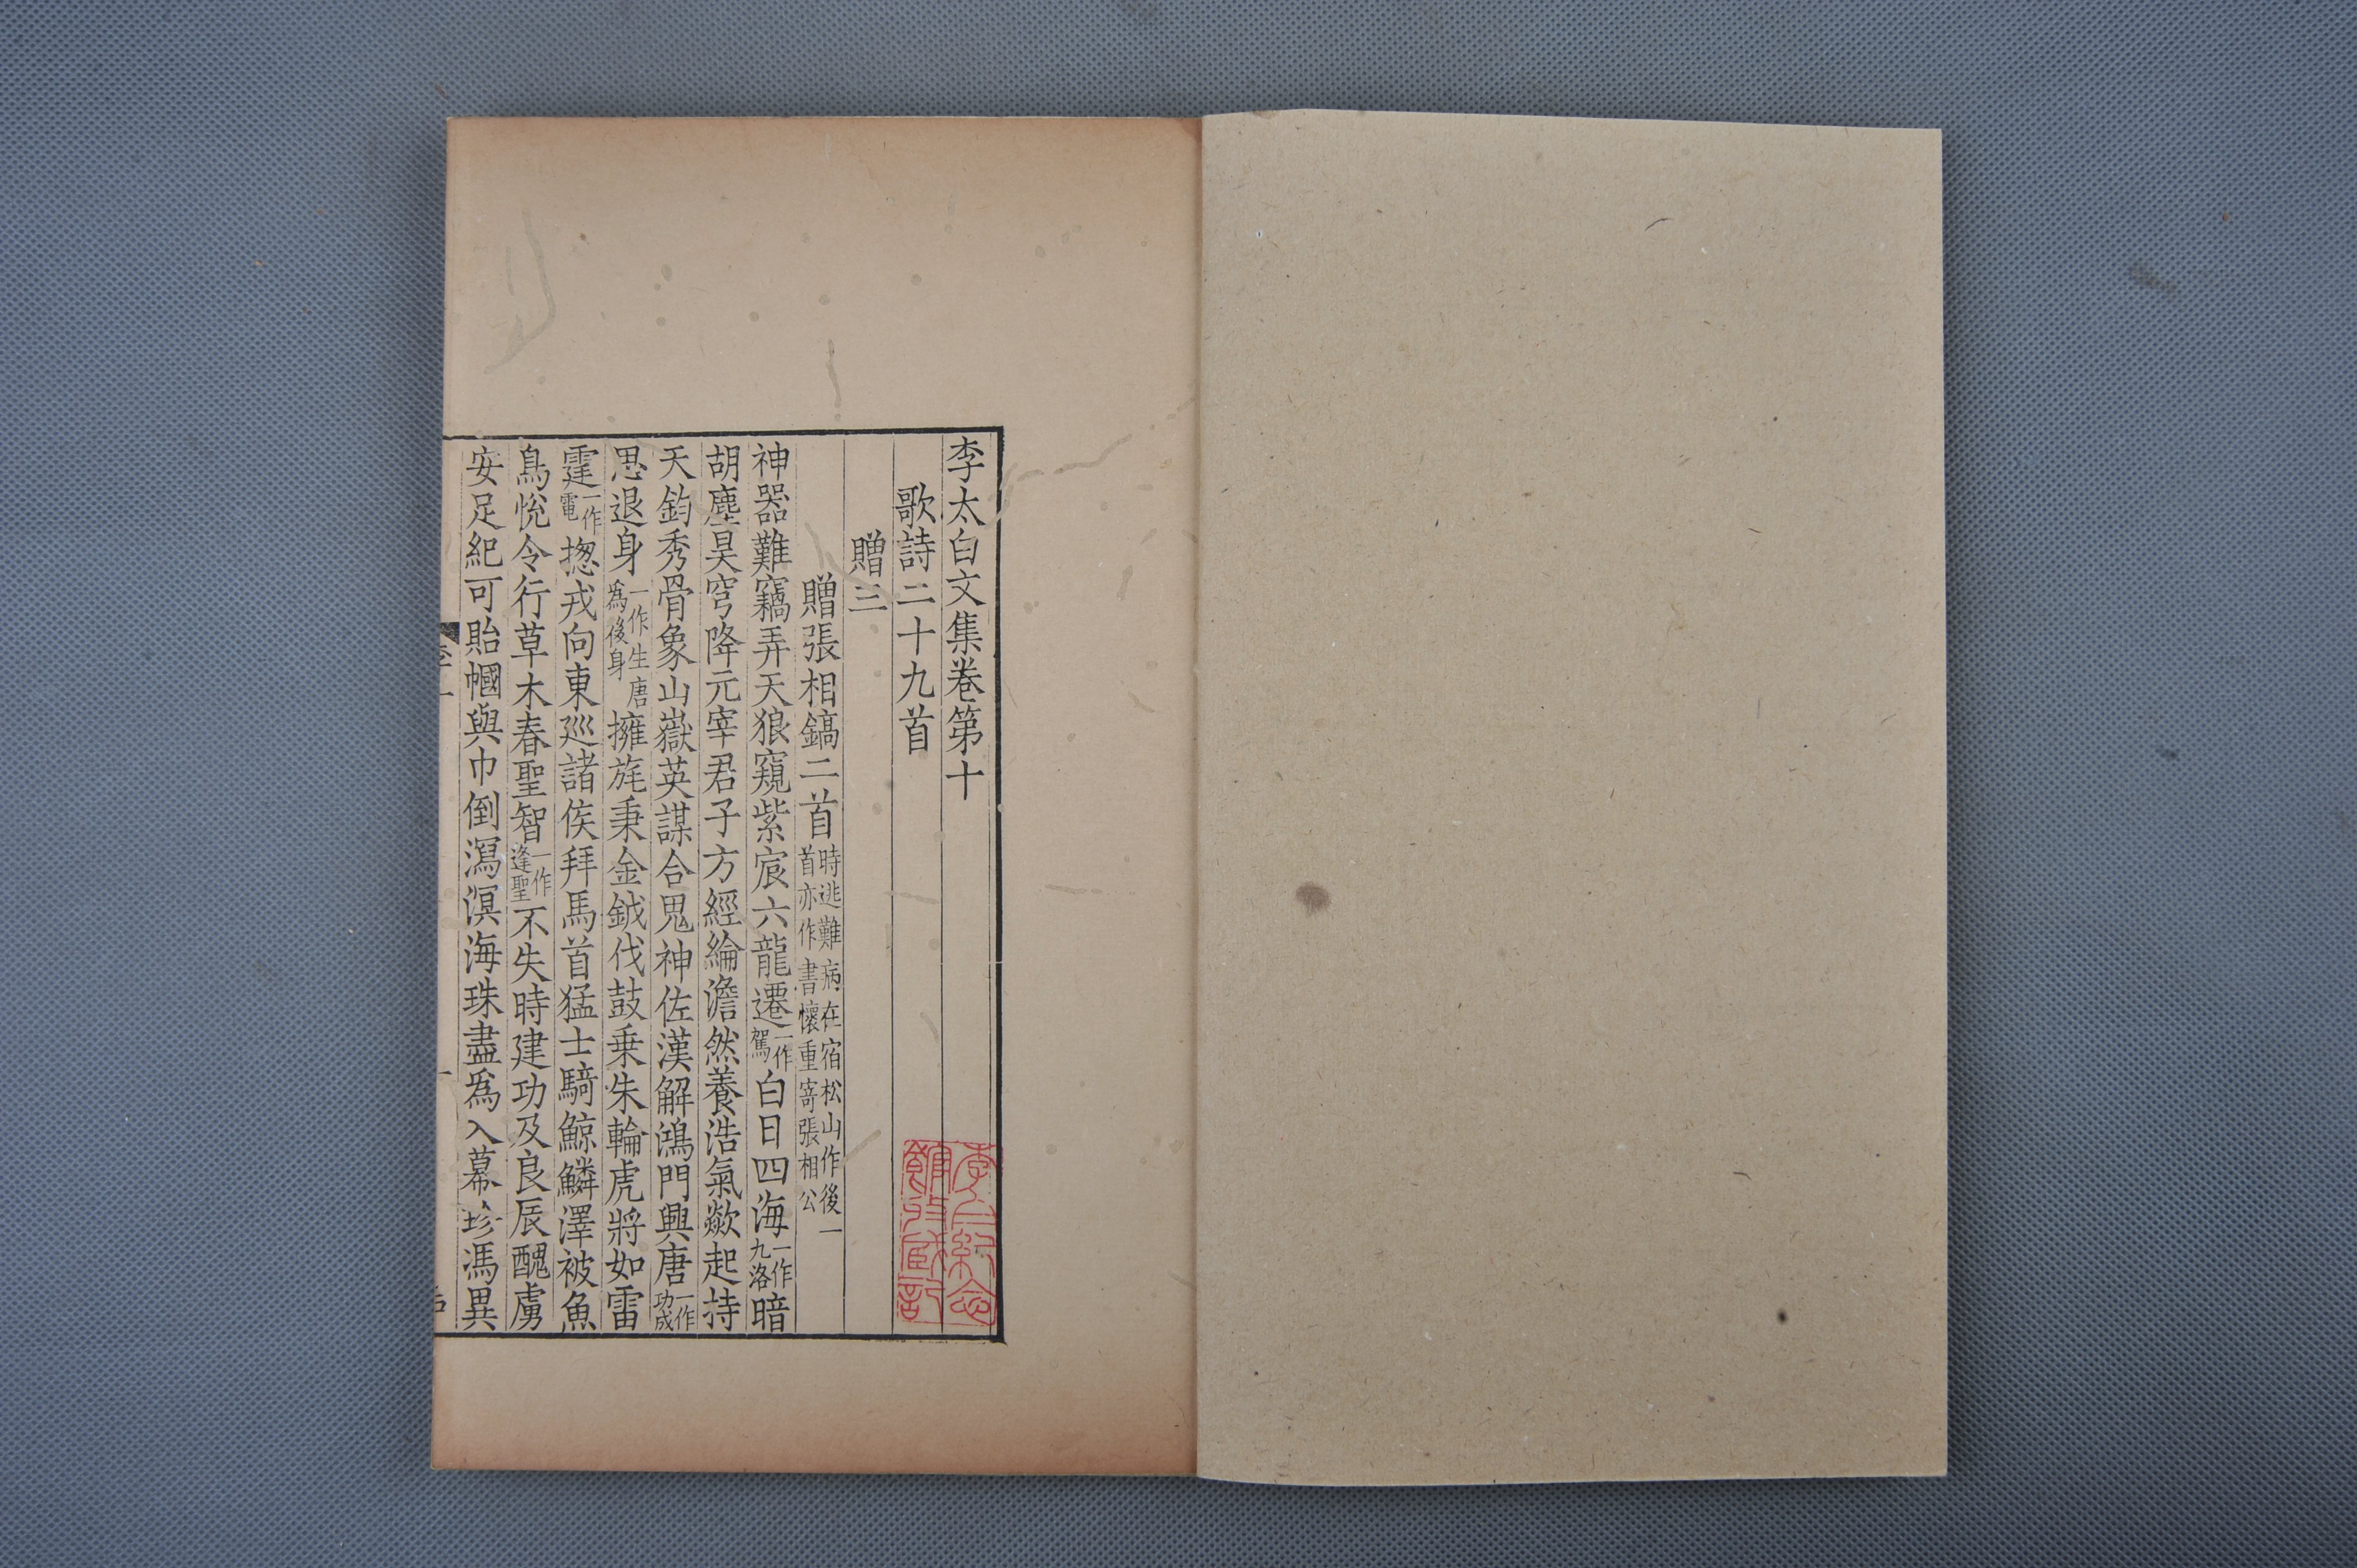 李太白文集卷第十
歌詩二十九首
贈三
贈張相鎬二首時逃難病在宿松山作後一首亦作書懷重寄張相公
神器難竊弄天狼窺紫宸六龍遷一作駕白日四海一作九洛暗
胡塵昊穹降元宰君子方經綸澹然養浩氣歘起持
天鈞秀骨象山嶽英謀合鬼神佐漢解鴻門興唐一作功成
思退身一作生唐為後身擁旄秉金鉞伐鼓乗朱輪虎將如雷
霆一作電揔戎向東廵諸侯拜馬首猛士騎鯨鱗澤被魚
鳥悅令行草木春聖智一作逢聖不失時建功及良辰醜虜
安足紀可貽幗與巾倒瀉溟海珠盡爲入幕珍馮異
李白紀念館珍藏記